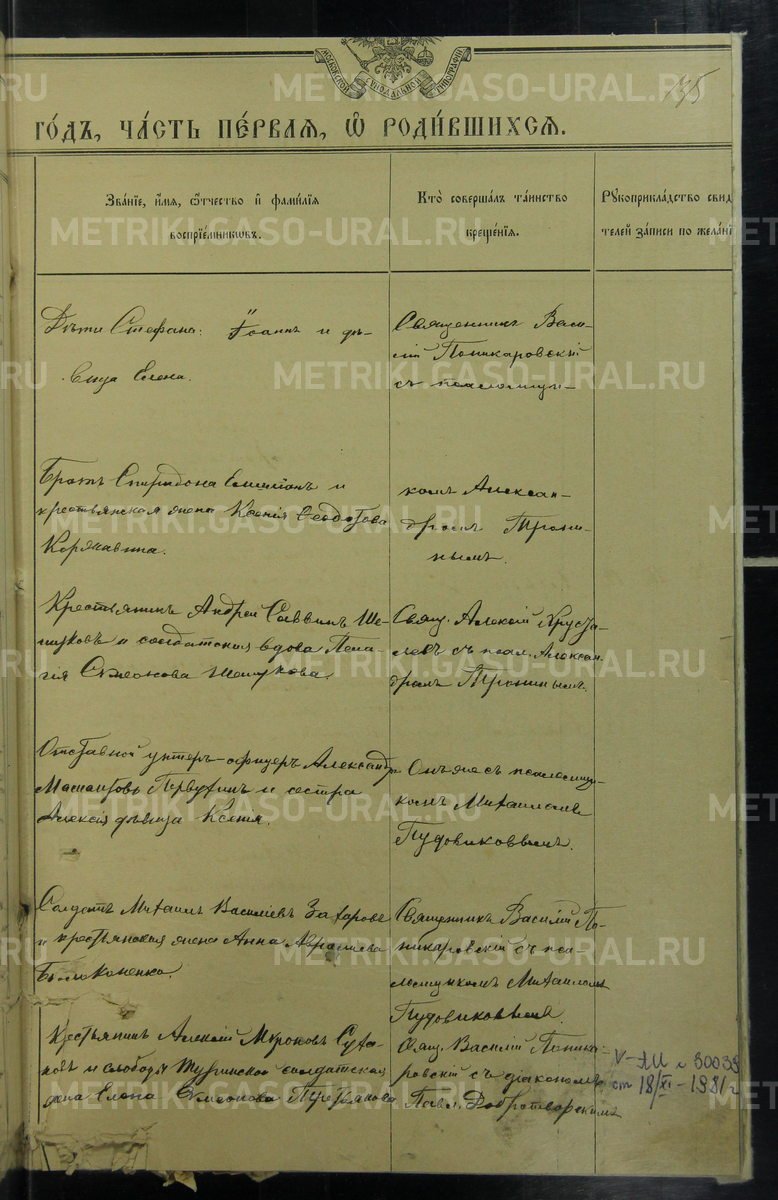 МОСКОВСКОЙ СѴНОДАЛЬНОЙ ТИПОГРАФІИ
195
ГОДЪ, ЧАСТЬ ПЕРВАЯ, Ѽ РОДИВШИХСЯ.
Званіе, имя, ѿчество и фамилія
воспріемниковъ.
Кто совершалъ таинство
крещенія.
Рукоприкладство свид
телей записи по желані
Дѣти Стефана: Іоаннъ и дѣ-
вица Елена.
Священникъ Васи-
лій Поникаровскій
съ псаломщи-
Братъ Спиридона Емеліанъ и
крестьянская жена Ксенія Ѳеодотова
Коржавина.
комъ Алексан-
дромъ Трони-
нымъ.
Крестьянинъ Андрей Саввинъ Ше-
лудова и солдатская вдова Пела-
гія Симеонова
Свящ. Алексій Хруста-
левъ съ псал. Алексан-
дромъ Тронинымъ.
Отставной унтеръ-офицеръ Александръ
Первухинъ и сестра
Алексія дѣвица Ксенія.
Онъ же съ псаломщи-
комъ Михаиломъ
Пудовиковымъ.
Солдатъ Михаилъ Василіевъ Захаровъ
и крестьянская жена Анна Авраміева
Бѣлоконенко.
Священникъ Василій По-
никаровскій съ пса-
ломщикомъ Михаиломъ
Пудовиковымъ.
Крестьянинъ Алексій Мироновъ Суха-
новъ и слободы Туринской солдатская
жена Елена Симеонова
Свящ. Василій Поника-
ровскій съ діакономъ
Павл. Добротворскимъ
V-АИ № 30033
от 18/XI-1981г
METRIKI.GASO-URAL.RU